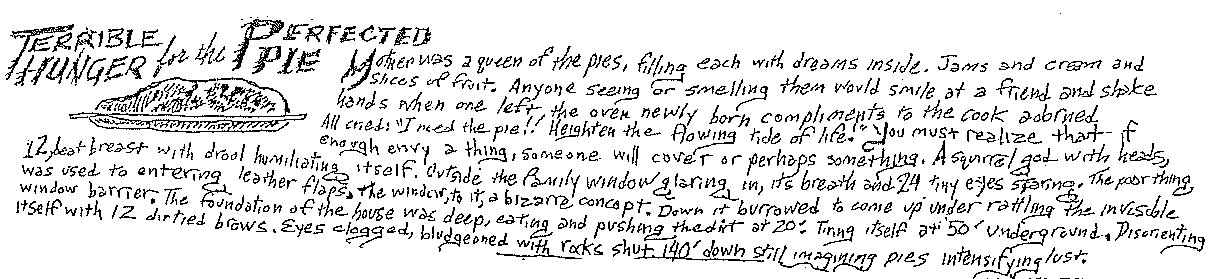 TERRIBLE HUNGER for the PERFECTED PIE
Mother was a queen of the pies, filling each with dreams inside. Jams and cream and
slices of fruit. Anyone seeing or smelling them would smile at a friend and shake
hands when one left the oven newly born compliments to the cook adorned.
All cried: "I need the pie!! Heighten the flowing tide of life!" You must realize that if
enough envy a thing, someone will covet or perhaps something. A squirrel god with heads,
12, beat breast with drool humiliating itself. Outside the family window glaring in, it's breath and 24 tiny eyes staring. The poor thing
was used to entering leather flaps. The window, to it, a bizarre concept. Down it burrowed to come up under rattling the invisible
window barrier. The foundation of the house was deep, eating and pushing the dirt at 20'. Tiring itself at 50' underground. Disorienting
itself with 12 dirtied brows. Eyes clogged, bludgeoned with rocks shut. 140' down still imagining pies intensifying lust.